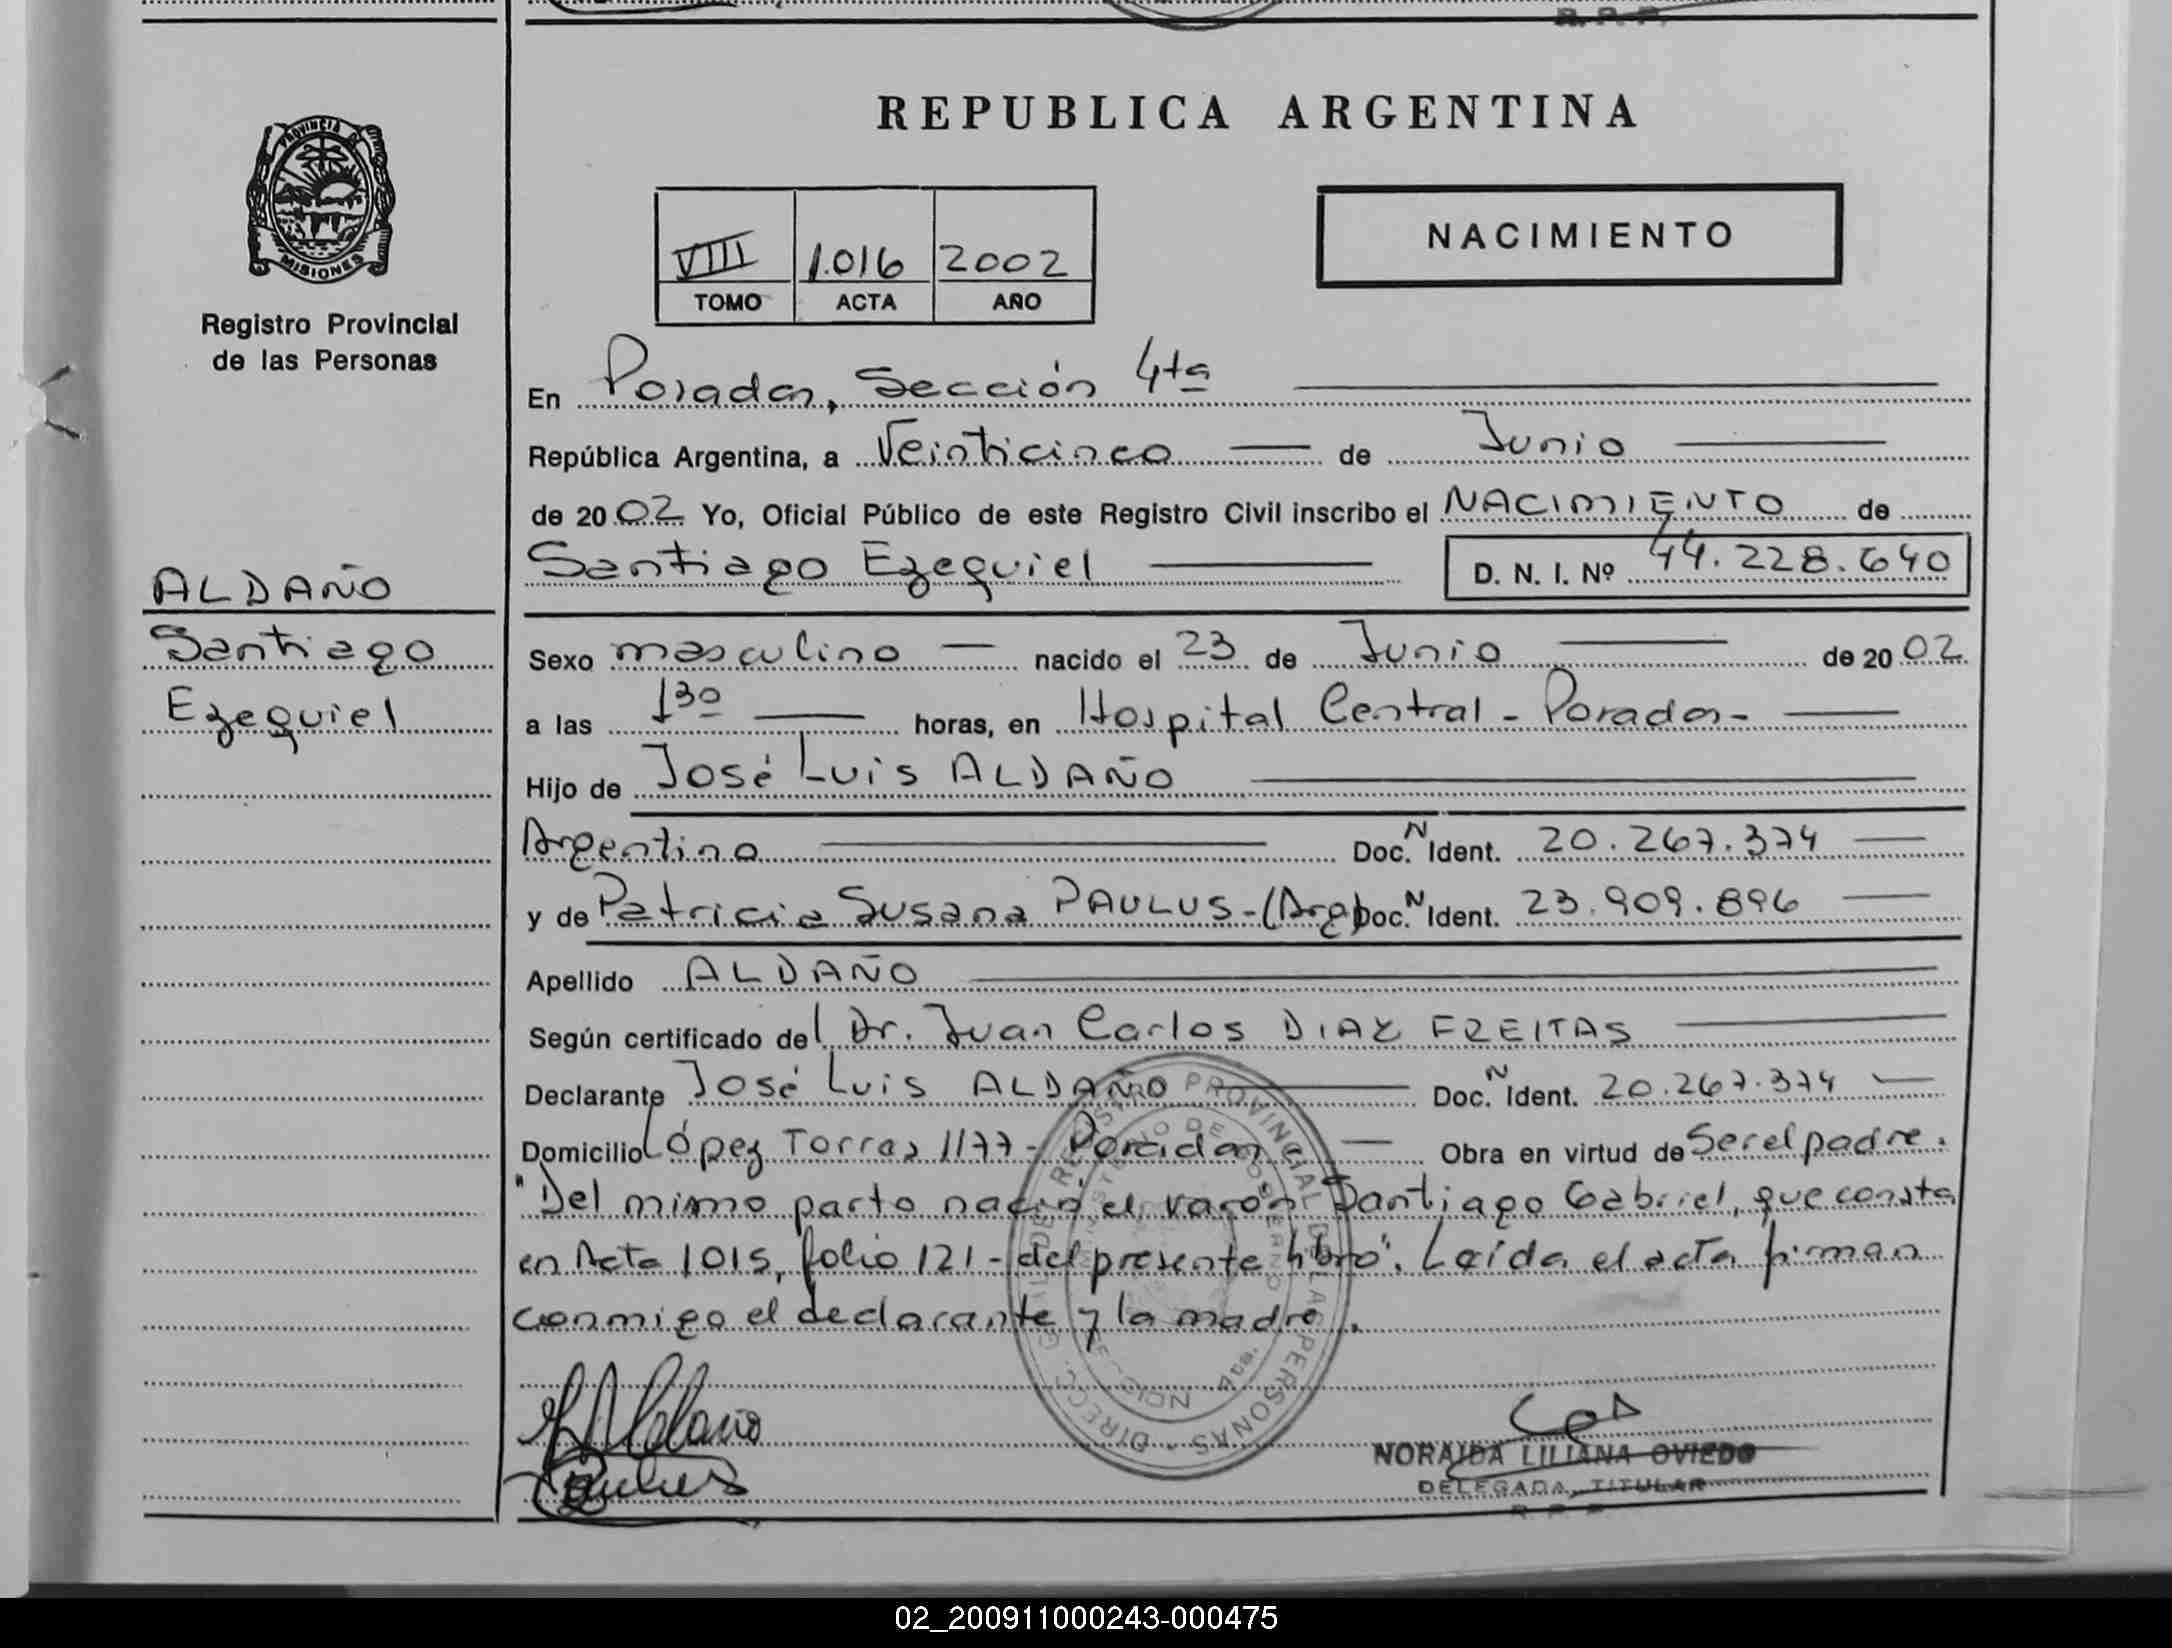 R. P. P.
REPUBLICA ARGENTINA
PROVINCIA DE
MISIONES
Registro Provincial
de las Personas
VIII 1.016 2002
TOMO ACTA AÑO
NACIMIENTO
En Posadas, Sección 4ta
República Argentina, a Veinticinco de Junio
de 2002 Yo, Oficial Público de este Registro Civil inscribo el NACIMIENTO de
Santiago Ezequiel D. N. I. Nº 44.228.640
ALDAÑO
Santiago
Ezequiel
Sexo masculino nacido el 23 de Junio de 2002
a las 1 30 horas, en Hospital Central - Posadas -
Hijo de José Luis ALDAÑO
Argentino Doc. N Ident. 20.267.374
y de Patricia Susana PAULUS - (Arg) Doc. N Ident. 23.909.896
Apellido ALDAÑO
Según certificado del Dr. Juan Carlos DIAZ FREITAS
Declarante José Luis ALDAÑO Doc. N Ident. 20.267.374
Domicilio López Torres 1177 - Posadas Obra en virtud de Ser el padre.
"Del mismo parto nació el varón Santiago Gabriel, que consta
en Acta 1015, folio 121 - del presente libro". Leída el acta firman
conmigo el declarante y la madre.
DIRECC. GRAL. DE REGISTRO PROVINCIAL DE LAS PERSONAS
MINISTERIO DE GOBIERNO
Aldaño
Paulus
NORAIDA LILIANA OVIEDO
DELEGADA TITULAR
R. P. P.
02_200911000243-000475